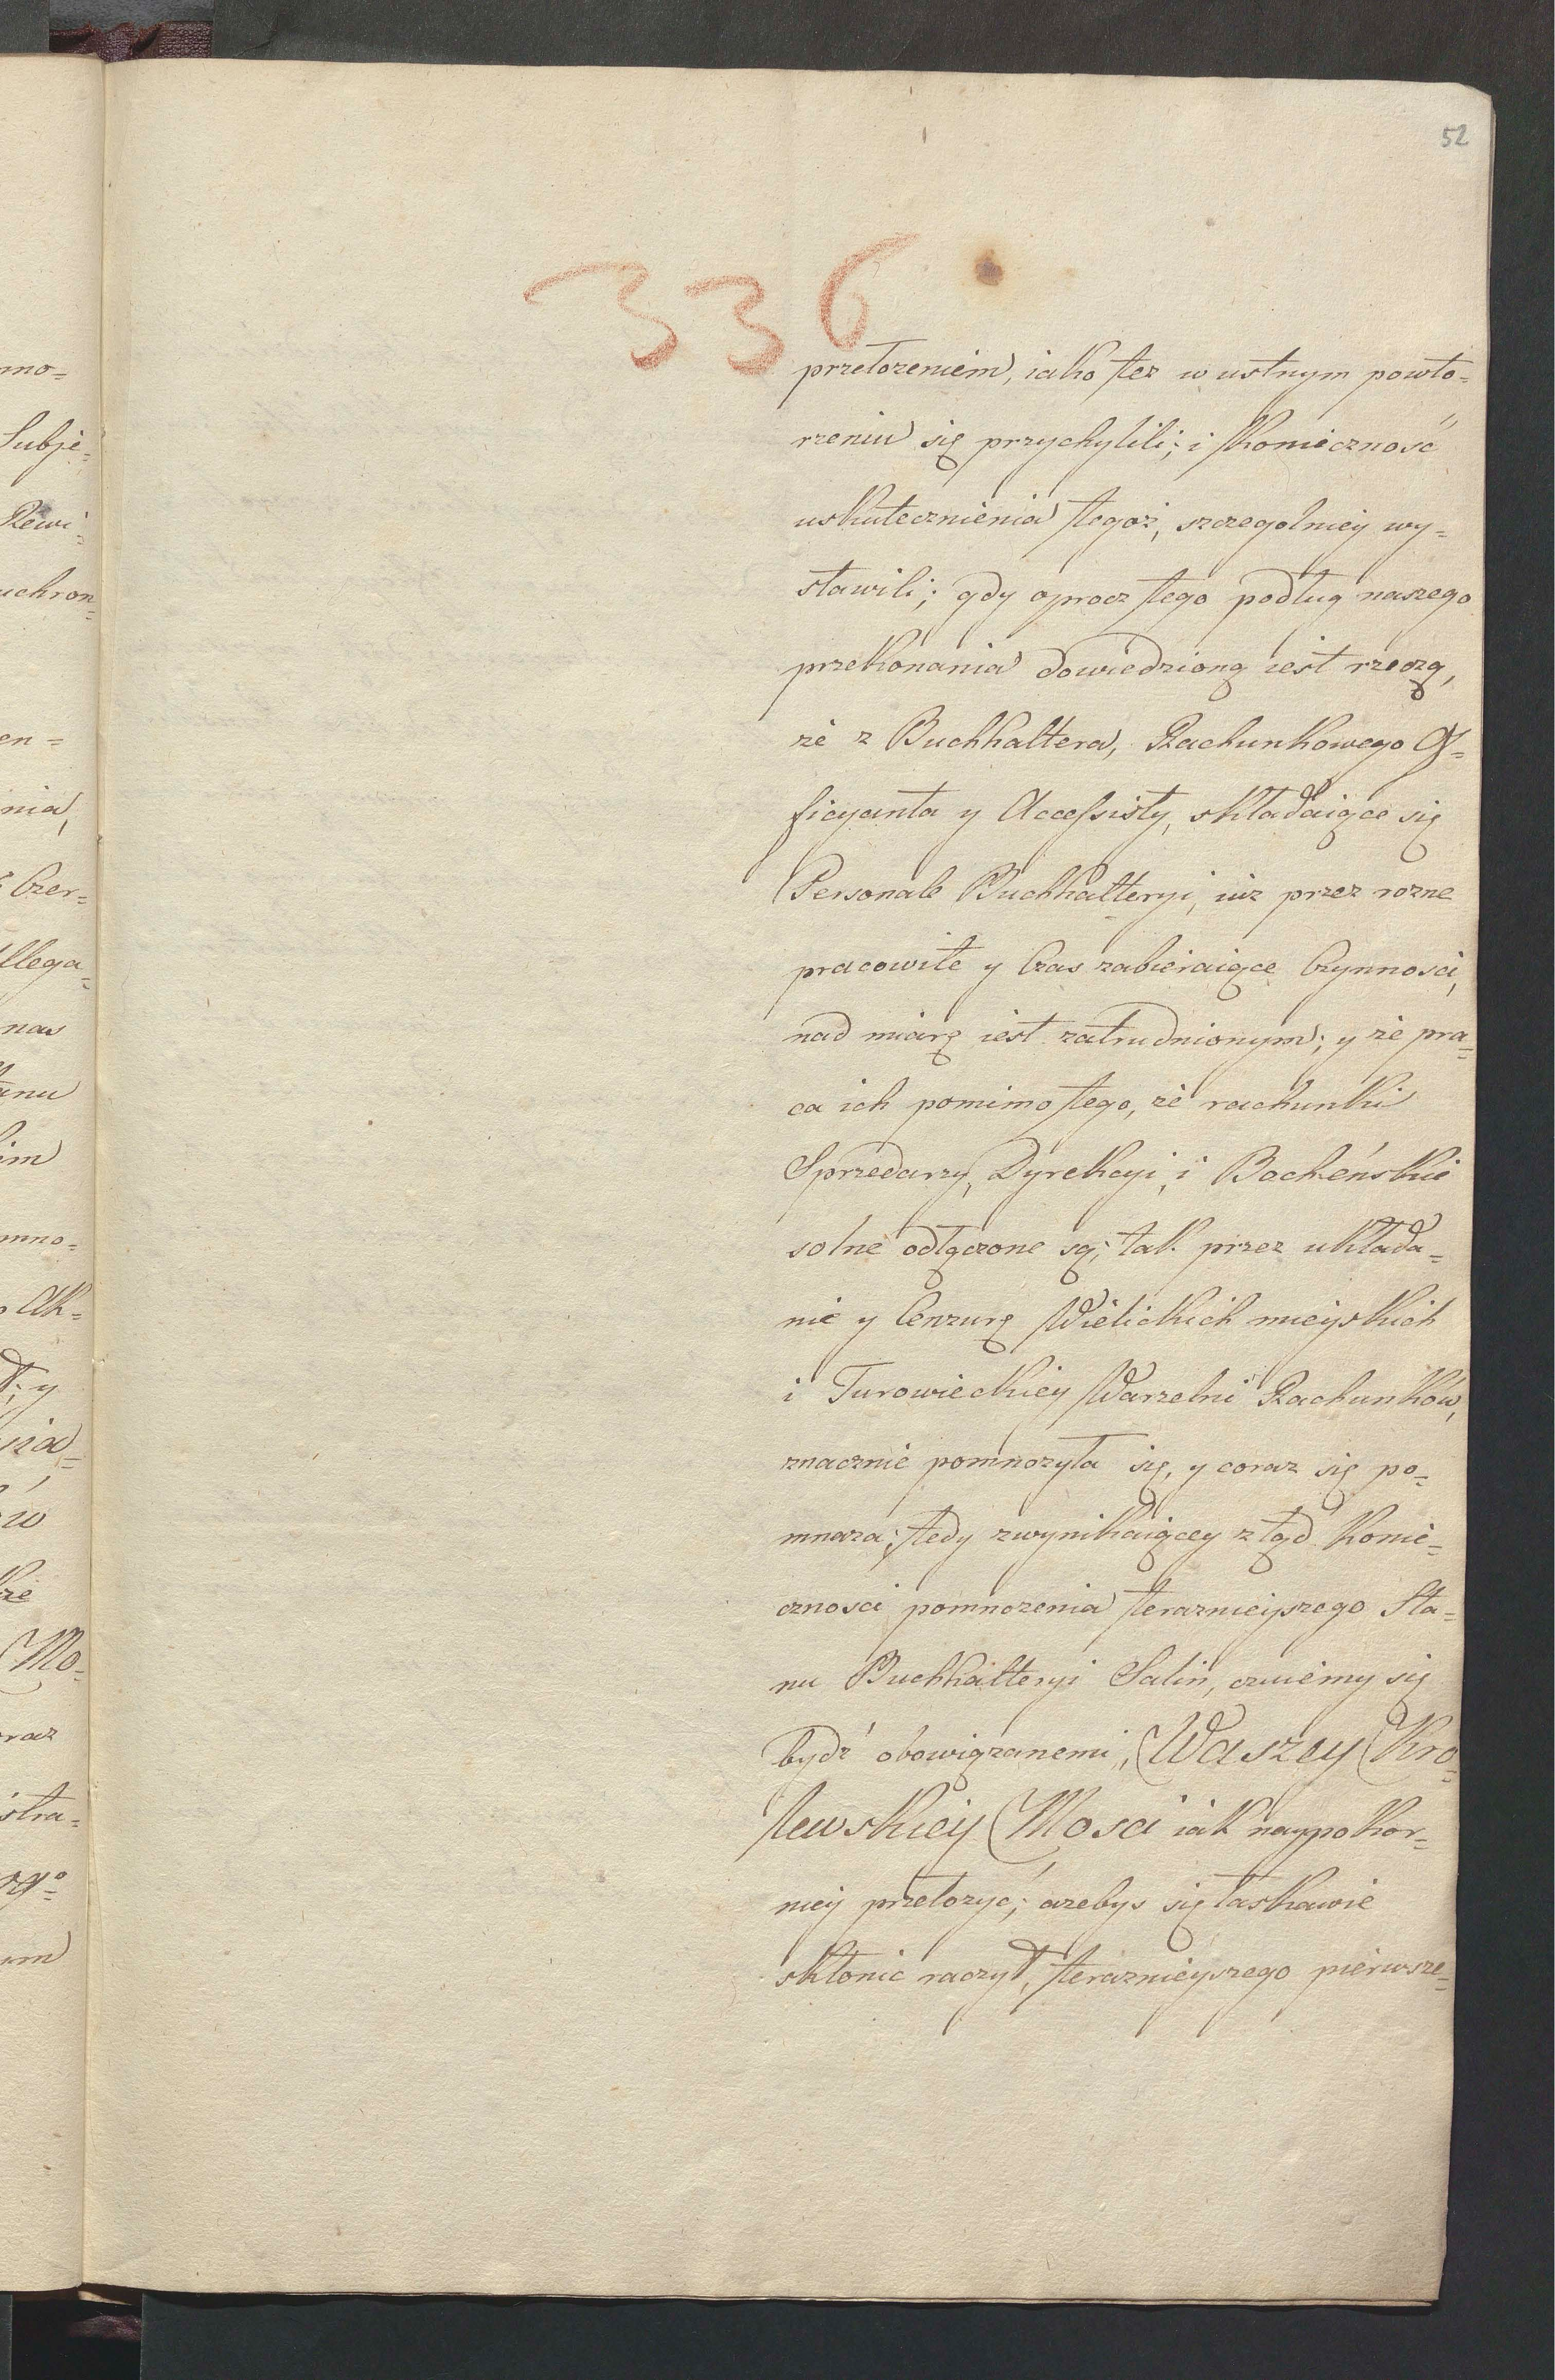 52
336
mo=
Subje=
Rewi=
uchron=
en=
nia,
Czer=
llega=
nas
anu
im
mno=
Ak=
ł; y
w
że
Mo=
raz
istra=
um
przełozeniem, iako tez w ustnym powto=
rzeniu się przychylili; i konieczność
uskutecznienia tegoż, szczegolniey wy=
stawili; gdy oprocz tego podług naszego
przekonania dowiedzioną iest rzeczą,
że z Buchhaltera, Rachunkowego Of=
ficyanta y Accessisty, składaiące się
Personale Buchhalteryi, iuz przez rozne
pracowite y Czas zabieraiące Czynnosci,
nad miarę iest zatrudnionym; y że pra=
ca ich pomimo tego, że rachunki
Sprzedarzy, Dyrekcyi, i Bocheńskie
solne odłączone są; tak przez układa=
nie y Cenzurę Wielickich mieyskich
i Turowieckiey Warzelni Rachunków,
znacznie pomnozyła się, y coraz się po=
mnaza; tedy zwynikaiącey z tąd konie=
cznosci pomnozenia teraznieyszego Sta=
nu Buchhalteryi Salin, czuiemy się
bydź obowiązanemi, Waszey Kro=
lewskiey Mosci iak naypokor=
niey przełozyć; azebys się łaskawie
skłonic raczył, teraznieyszego pierwsze=